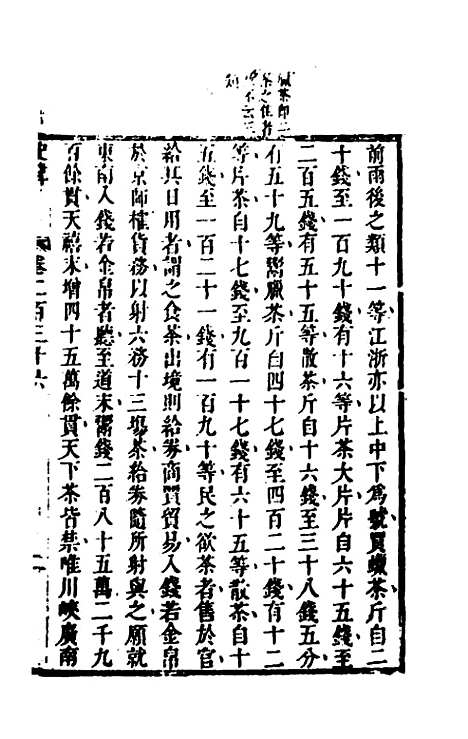 前雨後之類十一等江浙亦以上中下爲號買蠟茶斤自二
十錢至一百九十錢有十六等片茶大片片自六十五錢至
二百五錢有五十五等散茶斤自十六錢至三十八錢五分
有五十九等鬻臘茶斤自四十七錢至四百二十錢有十二
等片茶自十七錢至九百一十七錢有六十五等散茶自十
五錢至一百二十一錢有一百九十等民之欲茶者售於官
給其日用者謂之食茶出境則給券商賈貿易入錢若金帛
於京師榷貨務以射六務十三場茶給券隨所射與之願就
東南入錢若金帛者聽至道末鬻錢二百八十五萬二千九
百餘貫天禧末增四十五萬餘貫天下茶皆禁唯川峽廣南
卷二百三十六